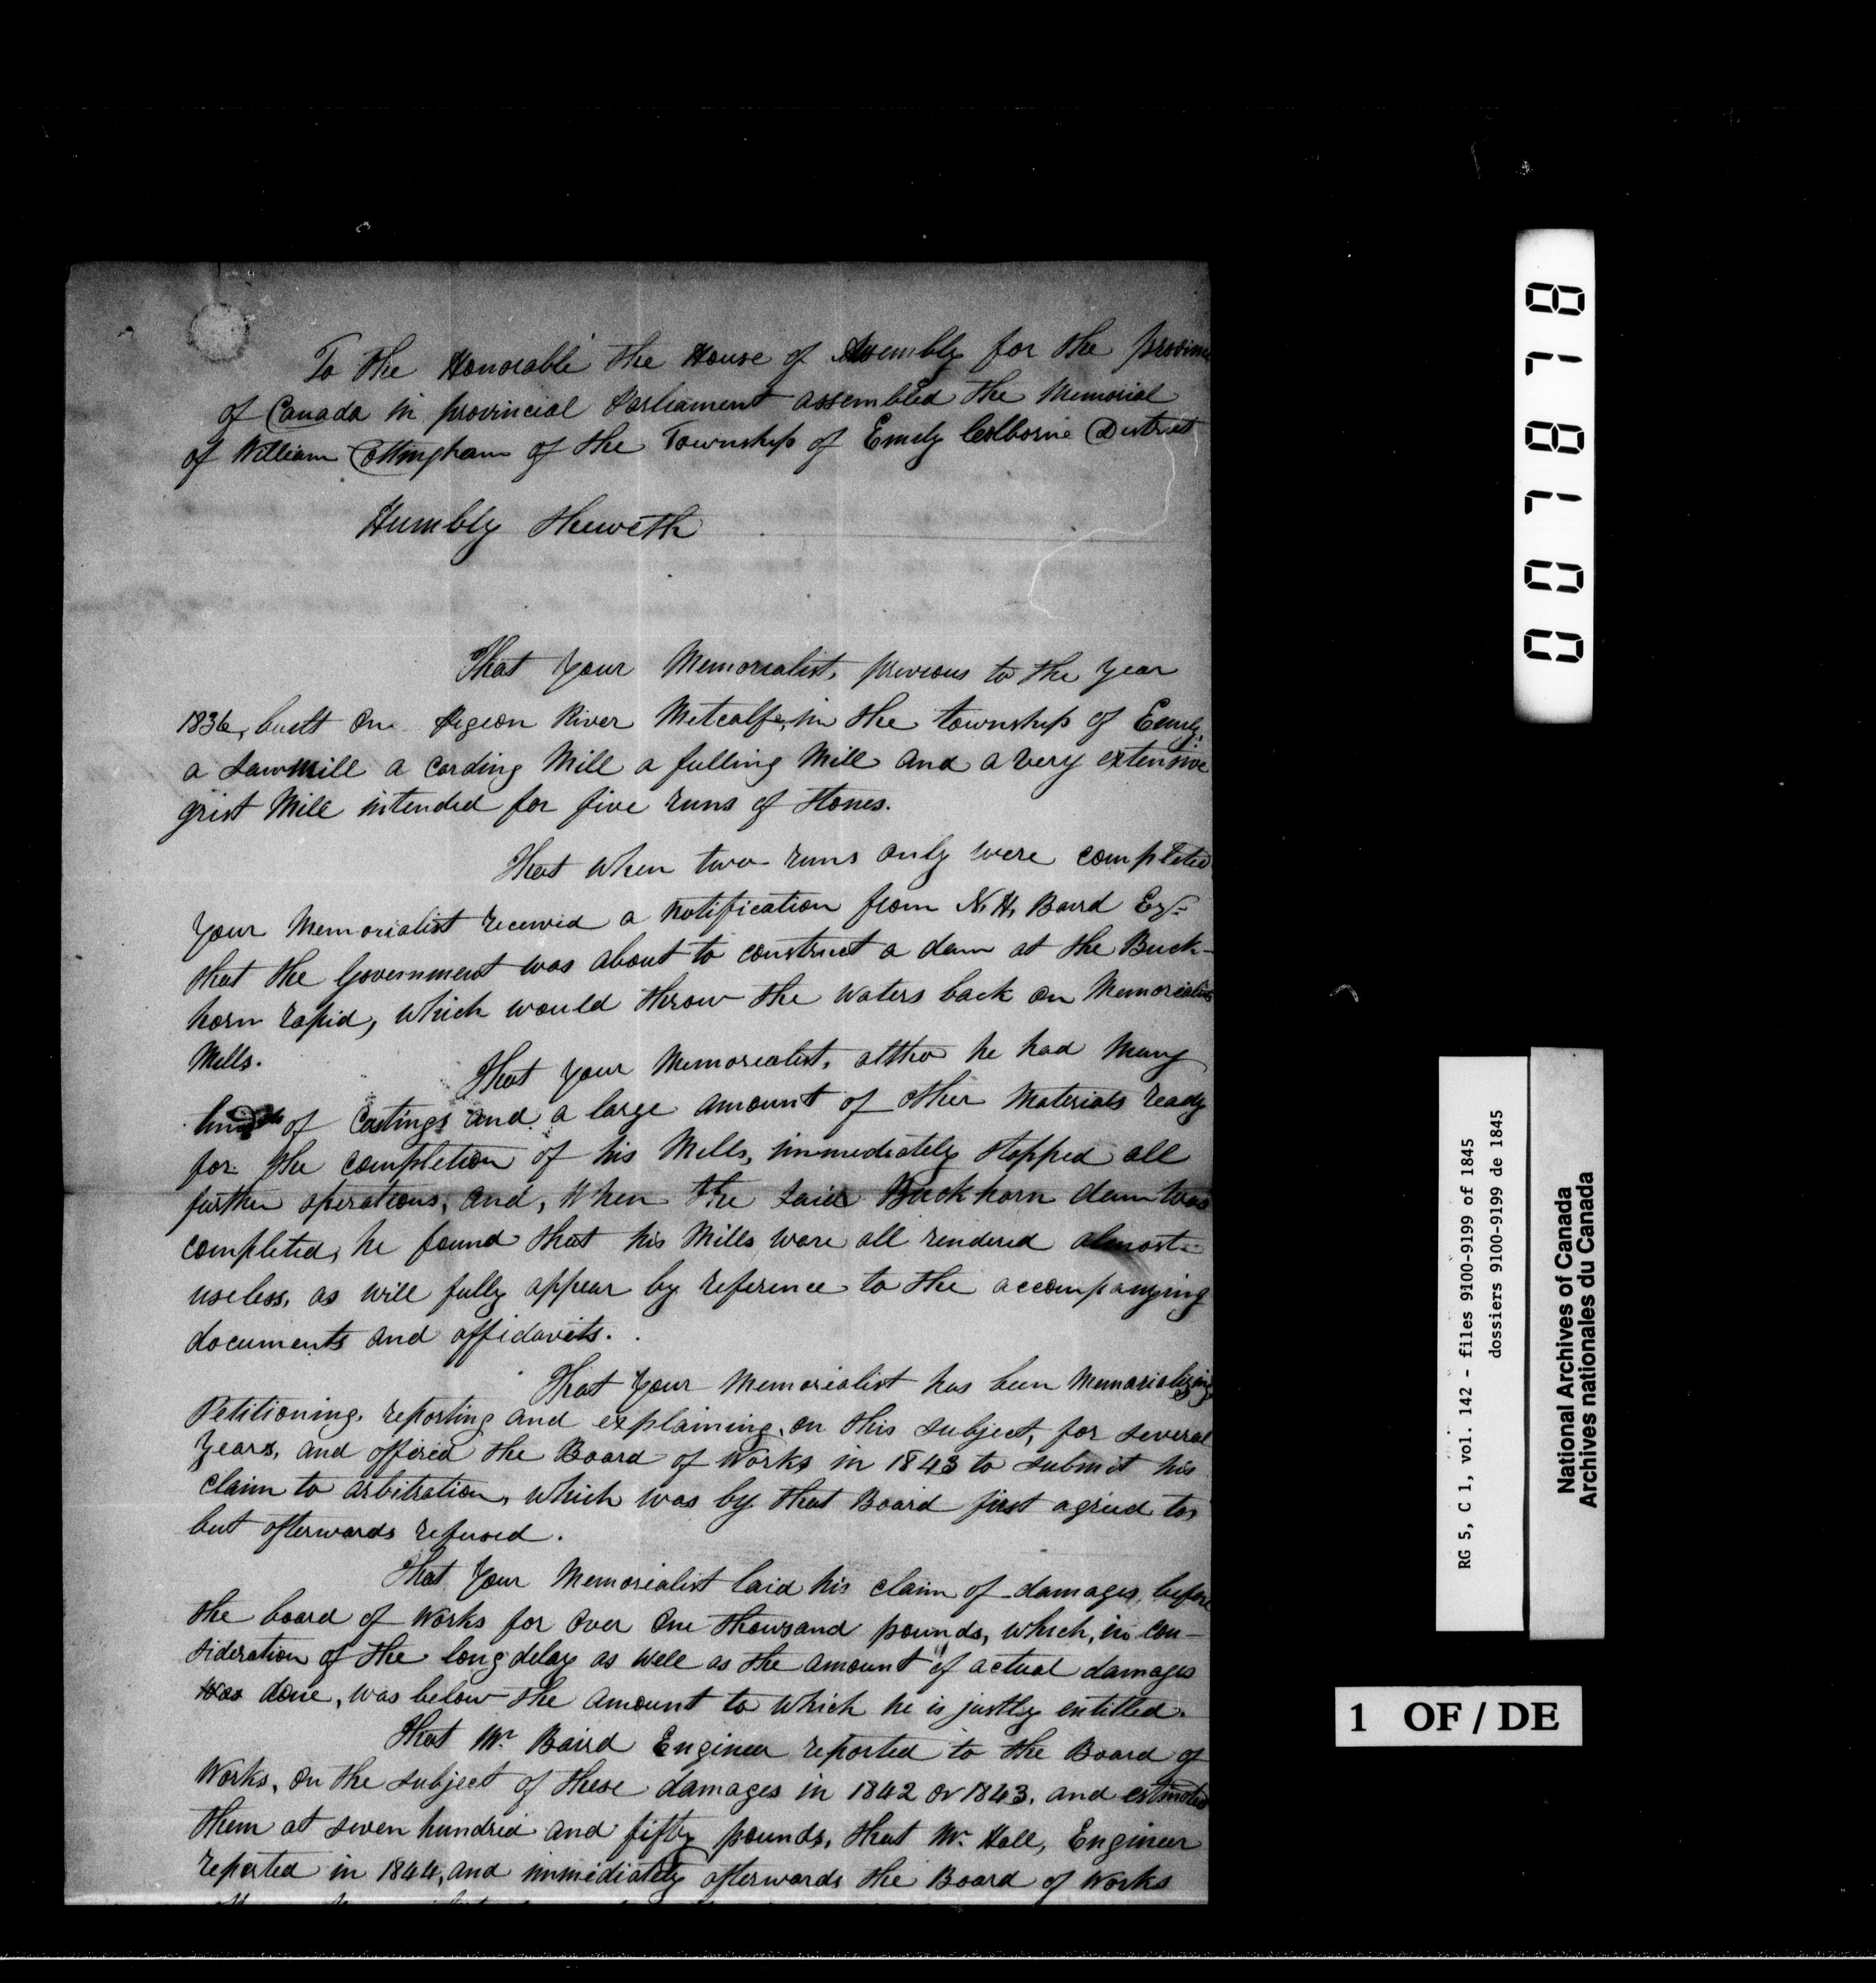 To the Honorable the House of Assembly for the province
of Canada in provincial Parliament assembled the Memorial
of William Cottingham of the Township of Emily Colborne District
Humbly Sheweth
That your Memorialist, previous to the year
1836, built on Pigeon River Metcalfe, in the township of Emily,
a Sawmill a Carding Mill a fulling Mill and a very extensive
grist Mill intended for five runs of Stones.
That when two runs only were completed
your Memorialist received a notification from N. H. Baird Esqr
that the Government was about to construct a dam at the Buck-
horn rapid, which would throw the waters back on Memorialists
Mills.
That your Memorialist, altho he had many
of Castings and a large amount of other Materials ready
for the completion of his Mills, immediately stopped all
further operations, and, when the said Buckhorn dam was
completed, he found that his Mills ware all rendered almost
useless, as will fully appear by reference to the accompanying
documents and affidavits.
That your Memorialist has been Memorializing
Petitioning, reporting and explaining, on this subject, for several
years, and offered the Board of Works in 1843 to submit his
claim to arbitration, which was by that Board first agreed to,
but afterwards refused.
That your Memorialist laid his claim of damages, before
the board of Works for over One thousand pounds, which, in con-
sideration of the long delay as well as the amount of actual damages
was done, was below the amount to which he is justly entitled.
That Mr. Baird Engineer reported to the Board of
Works, on the subject of these damages in 1842 or 1843, and estimated
them at seven hundred and fifty pounds, that Mr. Hall, Engineer
reported in 1844, and immediately afterwards the Board of Works
007878
RG 5, C 1, vol. 142 - files 9100-9199 of 1845
dossiers 9100-9199 de 1845
National Archives of Canada
Archives nationales du Canada
1 OF / DE